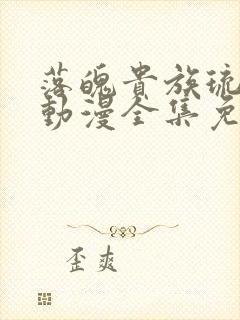 落魄貴族琉
動漫全集免
歪爽